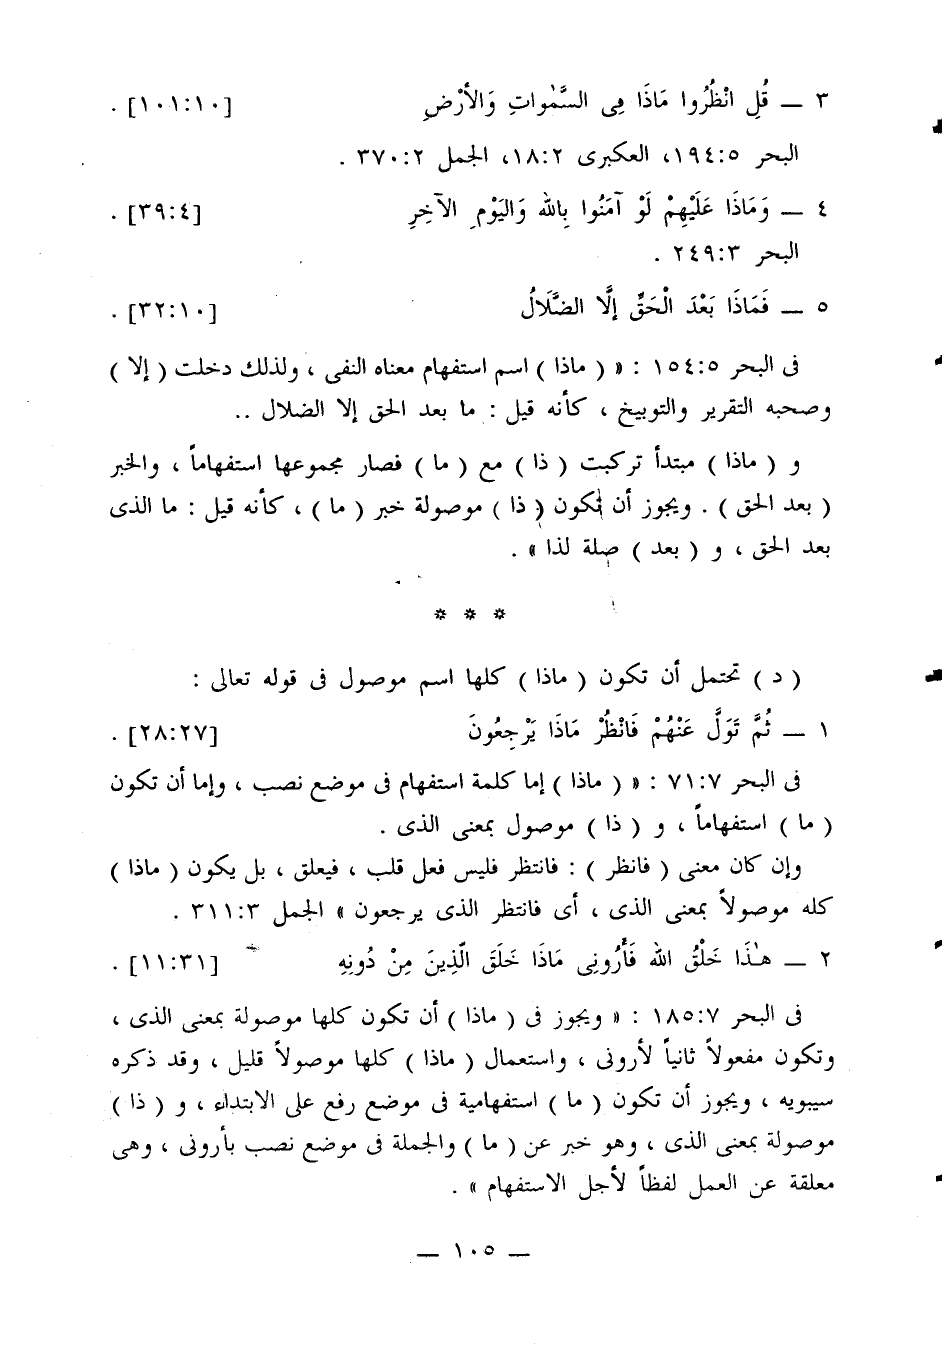 ٣ ــ قُلِ انْظُرُوا مَاذَا فِى السَّمٰوَاتِ وَالأَرْضِ [١٠١:١٠] .
البحر ١٩٤:٥، العكبرى ١٨:٢، الجمل ٣٧٠:٢ .
٤ ــ وَمَاذَا عَلَيْهِمْ لَوْ آمَنُوا بِالله وَاليَوْمِ الآخِرِ [٣٩:٤] .
البحر ٢٤٩:٣ .
٥ ــ فَمَاذَا بَعْدَ الْحَقِّ إِلَّا الضَّلَالُ [٣٢:١٠] .
فى البحر ١٥٤:٥ : « ( ماذا ) اسم استفهام معناه النفى ، ولذلك دخلت ( إلا )
وصحبه التقرير والتوبيخ ، كأنه قيل : ما بعد الحق إلا الضلال ..
و ( ماذا ) مبتدأ تركبت ( ذا ) مع ( ما ) فصار مجموعها استفهاماً ، والخبر
( بعد الحق ) . ويجوز أن تكون ( ذا ) موصولة خبر ( ما ) ، كأنه قيل : ما الذى
بعد الحق ، و ( بعد ) صلة لذا » .
* * *
( د ) تحتمل أن تكون ( ماذا ) كلها اسم موصول فى قوله تعالى :
١ ــ ثُمَّ تَوَلَّ عَنْهُمْ فَانْظُرْ مَاذَا يَرْجِعُونَ [٢٨:٢٧] .
فى البحر ٧١:٧ : « ( ماذا ) إما كلمة استفهام فى موضع نصب ، وإما أن تكون
( ما ) استفهاماً ، و ( ذا ) موصول بمعنى الذى .
وإن كان معنى ( فانظر ) : فانتظر فليس فعل قلب ، فيعلق ، بل يكون ( ماذا )
كله موصولاً بمعنى الذى ، أى فانتظر الذى يرجعون » الجمل ٣١١:٣ .
٢ ــ هٰذَا خَلْقُ الله فَأَرُونِى مَاذَا خَلَقَ الَّذِينَ مِنْ دُونِهِ [١١:٣١] .
فى البحر ١٨٥:٧ : « ويجوز فى ( ماذا ) أن تكون كلها موصولة بمعنى الذى ،
وتكون مفعولاً ثانياً لأرونى ، واستعمال ( ماذا ) كلها موصولاً قليل ، وقد ذكره
سيبويه ، ويجوز أن تكون ( ما ) استفهامية فى موضع رفع على الابتداء ، و ( ذا )
موصولة بمعنى الذى ، وهو خبر عن ( ما ) والجملة فى موضع نصب بأرونى ، وهى
معلقة عن العمل لفظاً لأجل الاستفهام » .
ــ ١٠٥ ــ